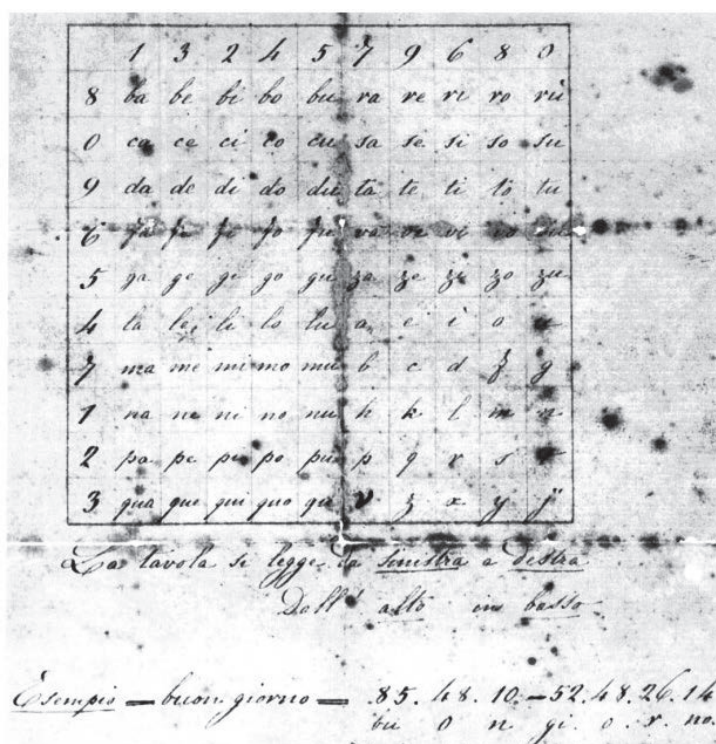 1 3 2 4 5 7 9 6 8 0
8 ba be bi bo bu ra re ri ro rù
0 ca ce ci co cu sa se si so su
9 da de di do du ta te ti to tu
6 fa fe fi fo fu va ve vi vo
5 ga ge gi go gu za ze zi zo zu
4 la le li lo lu a e i o
7 ma me mi mo mu b c d f g
1 na ne ni no nu h k l m n
2 pa pe pi po pu p q r s
3 qua que qui quo qu v z x y j
La tavola si legge da sinistra a destra
Dall' alto in basso
Esempio = buon giorno = .85. 48. 10. = 52. 48. 26. 14
bu o n gi. o. r. no.